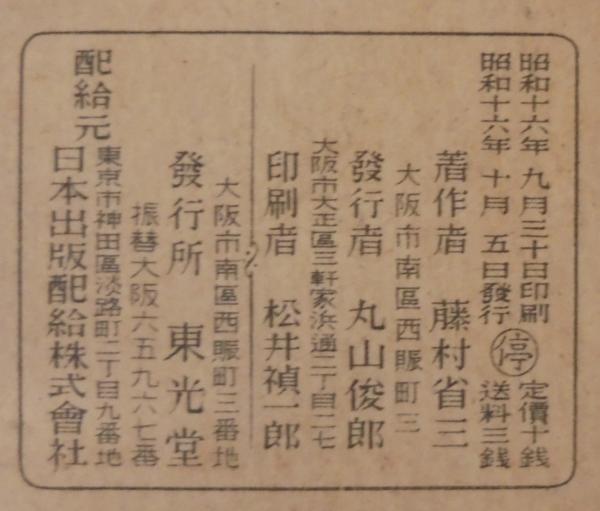 昭和十六年 九月三十日印刷 定價十銭
昭和十六年 十月 五日發行 停 送料三銭
著作者 藤村省三
大阪市南區西賑町三
發行者 丸山俊郎
大阪市大正區三軒家浜通二丁目二七
印刷者 松井禎一郎
大阪市南區西賑町三番地
發行所 東光堂
振替大阪六五九六七番
東京市神田區淡路町二丁目九番地
配給元 日本出版配給株式會社